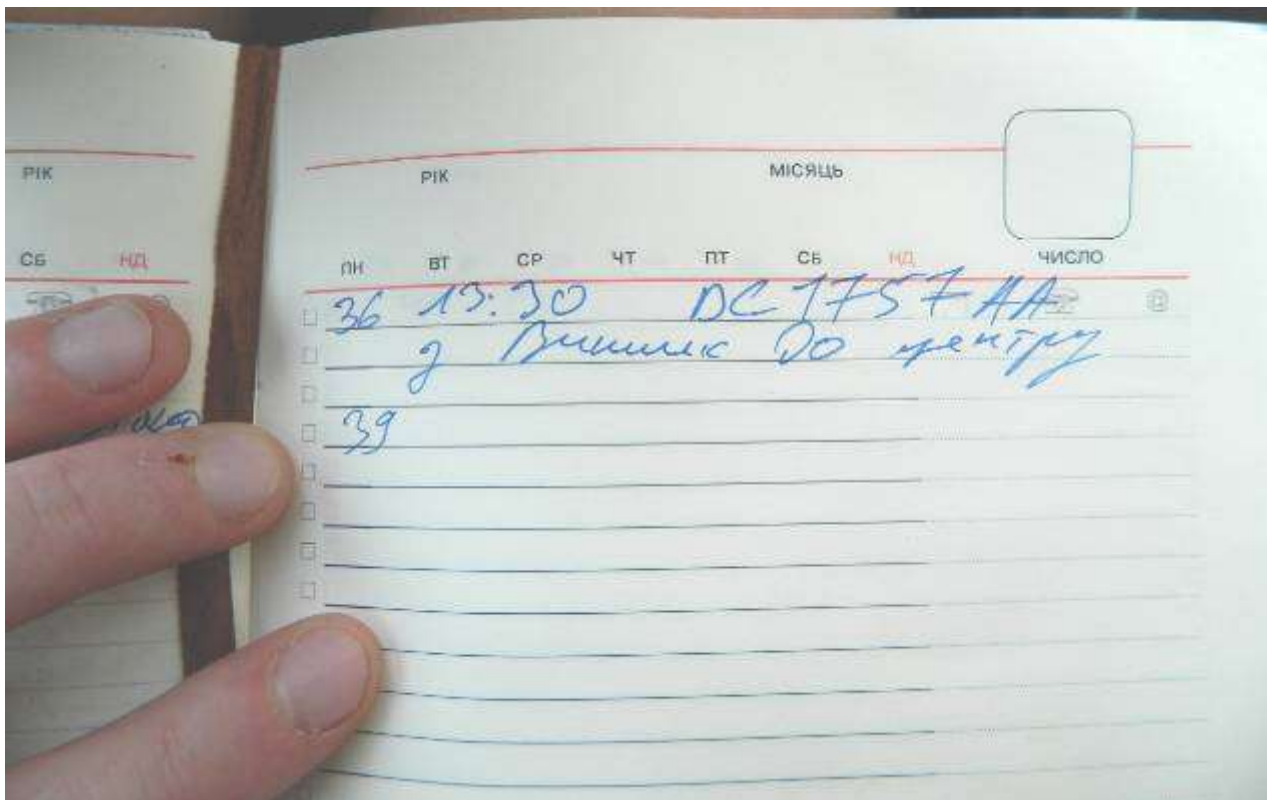 РІК
СБ НД
РІК МІСЯЦЬ
ПН ВТ СР ЧТ ПТ СБ НД ЧИСЛО
36 13:30 DC 1757 AA
до центру
39